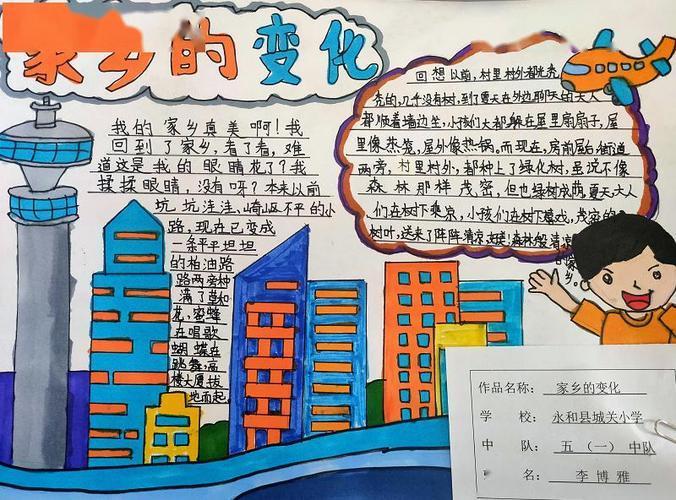 家乡的变化
我的家乡真美啊！我
回到了家乡，看了看，难
道这是我的眼睛花了？我
揉揉眼睛，没有呀？本来以前
坑坑洼洼、崎岖不平的小
路，现在已变成
一条平平坦坦
的柏油路
路两旁种
满了草和
花，蜜蜂
在唱歌
蝴蝶在
跳舞，高
楼大厦拔
地而起。
回想以前，村里村外都光秃
秃的，几乎没有树，到了夏天在外边聊天的大人
都顺着墙边坐，小孩们大都躲在屋里扇扇子，屋
里像蒸笼，屋外像热锅。而现在，房前屋后，街道
两旁，村里村外，都种上了绿化树，虽说不像
森林那样茂密，但也绿树成荫，夏天大人
们在树下乘凉，小孩们在树下嬉戏，茂密的
树叶，送来了阵阵清凉，森林般清凉
的家乡。
作品名称：家乡的变化
学校：永和县城关小学
中队：五（一）中队
名：李博雅